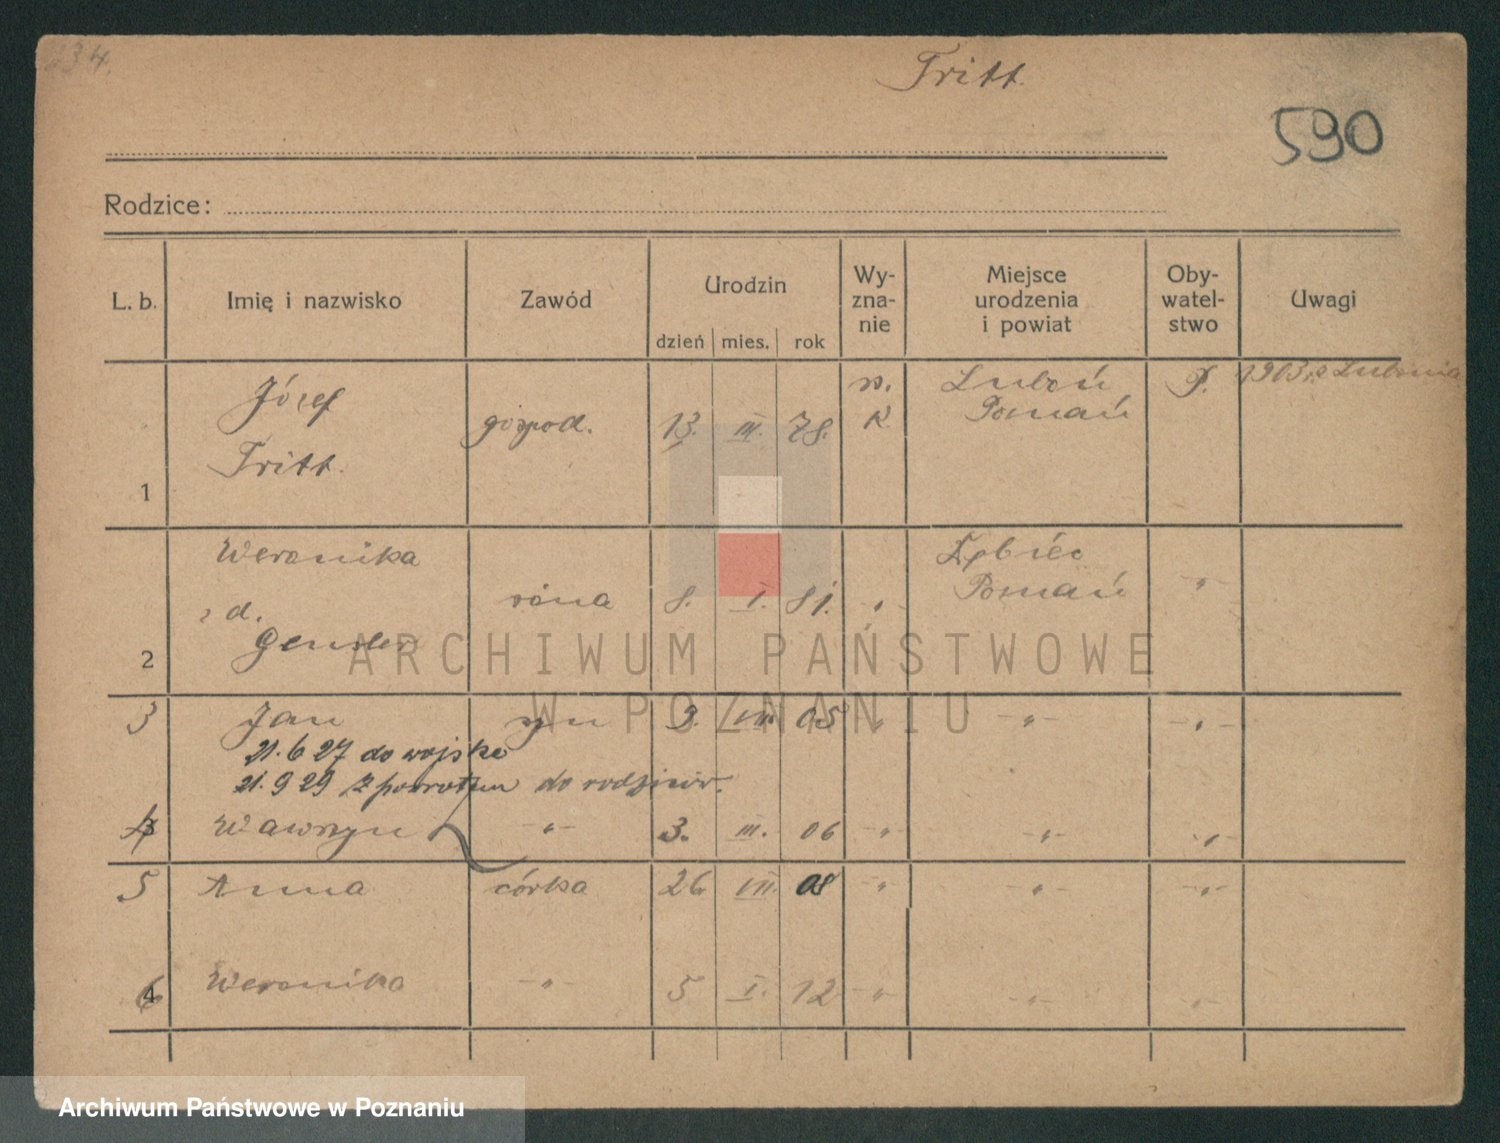 234.
Tritt
590
Rodzice:
L. b. Imię i nazwisko Zawód Urodzin dzień mies. rok Wy-zna-nie Miejsce urodzenia i powiat Oby-watel-stwo Uwagi
1 Józef Tritt. gospod. 13. III. 78. rz. K Luboń Poznań P. 1903 z Lubonia
2 Weronika z d. żona 8. I. 81. " Poznań "
3 Jan syn 9. VII. 05 " " "
21.6 27 do wojska
21. 9 29 z powrotem do rodziców.
4 3 Wawrzyn " 3. III. 06 " " "
5 Anna córka 26 VII. 08 " " "
6 4 Weronika " 5 I. 12 " " "
ARCHIWUM PAŃSTWOWE
W POZNANIU
Archiwum Państwowe w Poznaniu